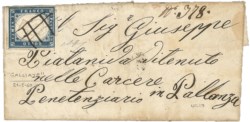 N. 378.
Al Sig.r Giuseppe
Piatanida detenuto
nelle Carcere
Penetenziario in Pallanza